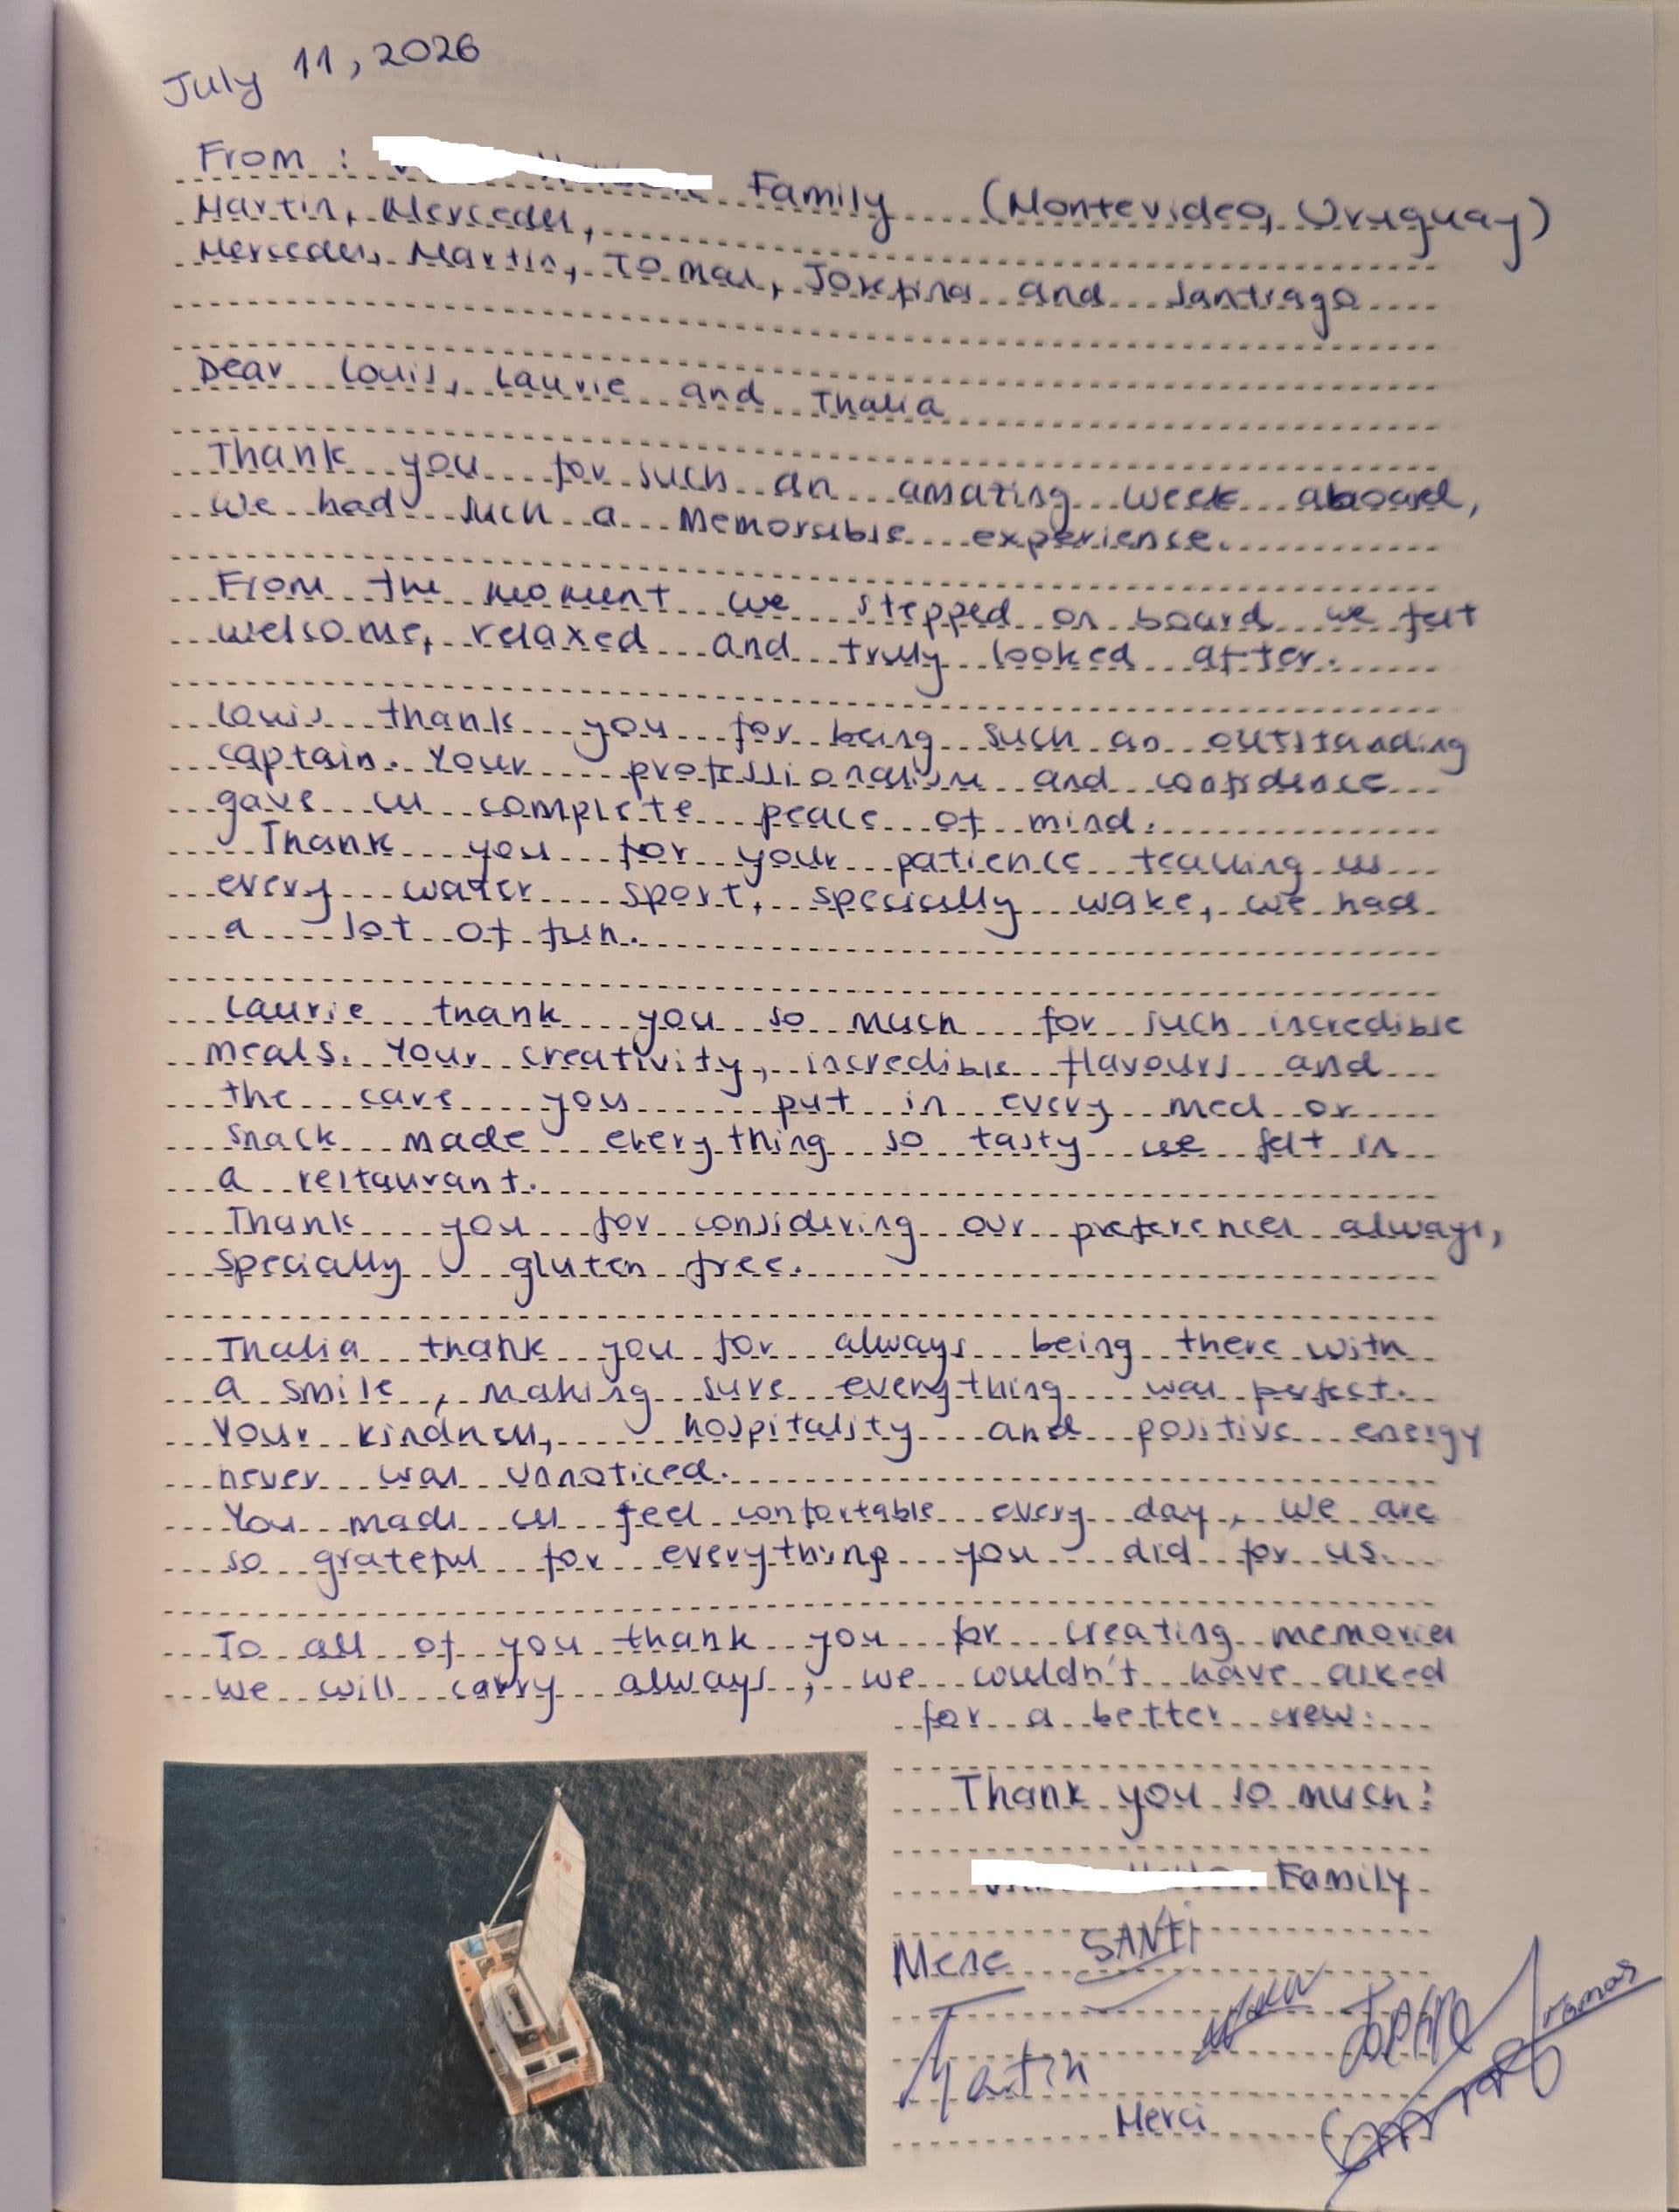 July 11, 2026
From : Family (Montevideo, Uruguay)
Martin, Mercedes,
Mercedes, Martin, Tomas, Josefina and Santiago
Dear Louis, Laurie and Thalia
Thank you for such an amazing week aboard,
we had such a memorable experience.
From the moment we stepped on board we felt
welcome, relaxed and truly looked after.
Louis thank you for being such an outstanding
captain. Your professionalism and confidence
gave us complete peace of mind.
Thank you for your patience teaching us
every water sport, specially wake, we had
a lot of fun.
Laurie thank you so much for such incredible
meals. Your creativity, incredible flavours and
the care you put in every meal or
snack made everything so tasty we felt in
a restaurant.
Thank you for considering our preferences always,
specially gluten free.
Thalia thank you for always being there with
a smile, making sure everything was perfect.
Your kindness, hospitality and positive energy
never was unnoticed.
You made us feel confortable every day, we are
so grateful for everything you did for us.
To all of you thank you for creating memories
we will carry always, we couldn't have asked
for a better crew.
Thank you so much!
Family
Mere SANTI
Martin
Tomas
Merci